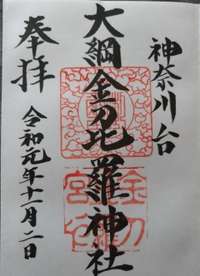 神奈川台
大綱金刀比羅神社
奉拝
令和元年十一月二日